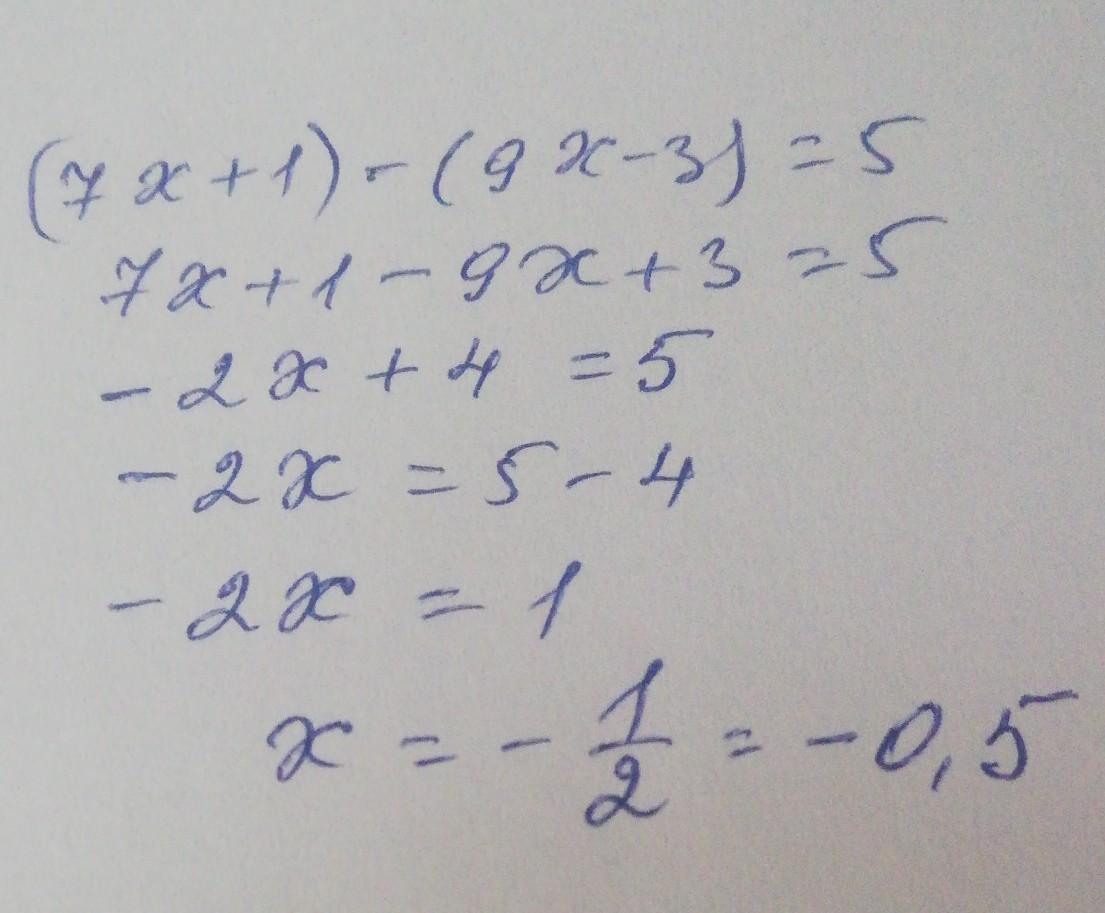 (7x+1)-(9x-3)=5
7x+1-9x+3=5
-2x+4=5
-2x=5-4
-2x=1
x=-1/2=-0,5